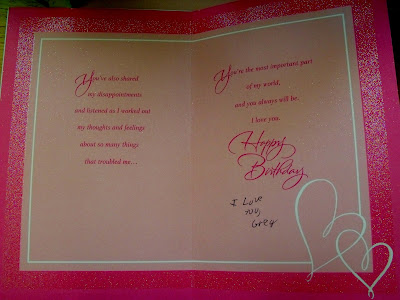 You've also shared
my disappointments
and listened as I worked out
my thoughts and feelings
about so many things
that troubled me...
You're the most important part
of my world,
and you always will be.
I love you.
Happy
Birthday
I Love
You,
Greg